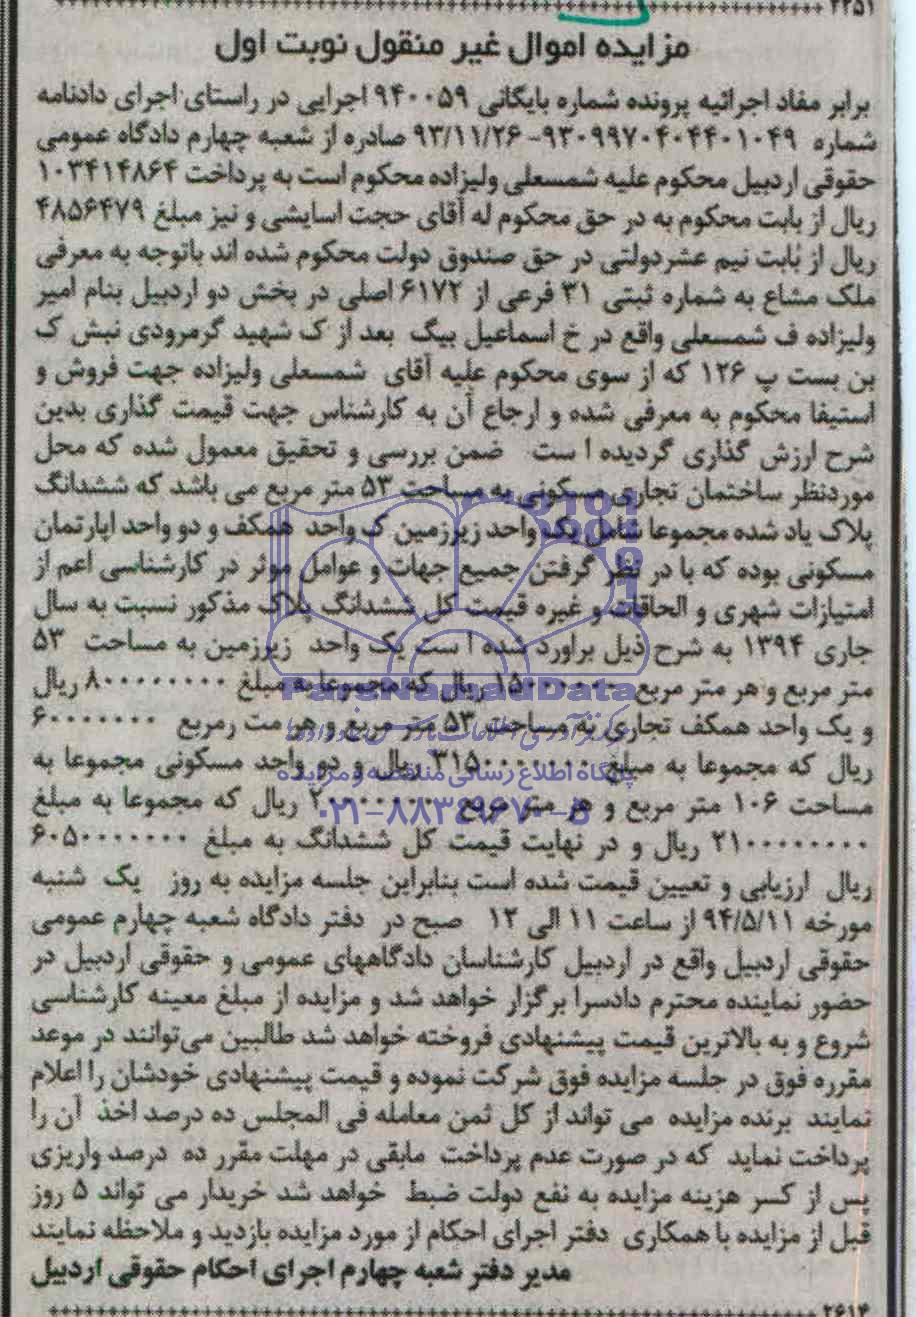 ۲۲۵۱
مزایده اموال غیر منقول نوبت اول
برابر مفاد اجرائیه پرونده شماره بایگانی ۹۴۰۰۵۹ اجرایی در راستای اجرای دادنامه
شماره ۹۳۰۹۹۷۰۴۰۴۴۰۱۰۴۹-۹۳/۱۱/۲۶ صادره از شعبه چهارم دادگاه عمومی
حقوقی اردبیل محکوم علیه شمسعلی ولیزاده محکوم است به پرداخت ۱۰۳۴۱۴۸۶۴
ریال از بابت محکوم به در حق محکوم له آقای حجت اسایشی و نیز مبلغ ۴۸۵۶۴۷۹
ریال از بابت نیم عشردولتی در حق صندوق دولت محکوم شده اند باتوجه به معرفی
ملک مشاع به شماره ثبتی ۳۱ فرعی از ۶۱۷۲ اصلی در بخش دو اردبیل بنام امیر
ولیزاده ف شمسعلی واقع در خ اسماعیل بیگ بعد از ک شهید گرمرودی نبش ک
بن بست پ ۱۲۶ که از سوی محکوم علیه آقای شمسعلی ولیزاده جهت فروش و
استیفا محکوم به معرفی شده و ارجاع آن به کارشناس جهت قیمت گذاری بدین
شرح ارزش گذاری گردیده ا ست ضمن بررسی و تحقیق معمول شده که محل
موردنظر ساختمان تجاری مسکونی به مساحت ۵۳ متر مربع می باشد که ششدانگ
پلاک یاد شده مجموعا شامل یک واحد زیرزمین ک واحد همکف و دو واحد اپارتمان
مسکونی بوده که با در نظر گرفتن جمیع جهات و عوامل موثر در کارشناسی اعم از
امتیازات شهری و الحاقات و غیره قیمت کل ششدانگ پلاک مذکور نسبت به سال
جاری ۱۳۹۴ به شرح ذیل براورد شده ا ست یک واحد زیرزمین به مساحت ۵۳
متر مربع و هر متر مربع ریال که مجموعا به مبلغ ۸۰۰۰۰۰۰۰۰ ریال
و یک واحد همکف تجاری به مساحت ۵۳ متر مربع و هر مت رمربع ۶۰۰۰۰۰۰۰
ریال که مجموعا به مبلغ ریال و دو واحد مسکونی مجموعا به
مساحت ۱۰۶ متر مربع و هر متر مربع ریال که مجموعا به مبلغ
۲۱۰۰۰۰۰۰۰۰ ریال و در نهایت قیمت کل ششدانگ به مبلغ ۶۰۵۰۰۰۰۰۰۰
ریال ارزیابی و تعیین قیمت شده است بنابراین جلسه مزایده به روز یک شنبه
مورخه ۹۴/۵/۱۱ از ساعت ۱۱ الی ۱۲ صبح در دفتر دادگاه شعبه چهارم عمومی
حقوقی اردبیل واقع در اردبیل کارشناسان دادگاههای عمومی و حقوقی اردبیل در
حضور نماینده محترم دادسرا برگزار خواهد شد و مزایده از مبلغ معینه کارشناسی
شروع و به بالاترین قیمت پیشنهادی فروخته خواهد شد طالبین می‌توانند در موعد
مقرره فوق در جلسه مزایده فوق شرکت نموده و قیمت پیشنهادی خودشان را اعلام
نمایند برنده مزایده می تواند از کل ثمن معامله فی المجلس ده درصد اخذ آن را
پرداخت نماید که در صورت عدم پرداخت مابقی در مهلت مقرر ده درصد واریزی
پس از کسر هزینه مزایده به نفع دولت ضبط خواهد شد خریدار می تواند ۵ روز
قبل از مزایده با همکاری دفتر اجرای احکام از مورد مزایده بازدید و ملاحظه نمایند
مدیر دفتر شعبه چهارم اجرای احکام حقوقی اردبیل
۲۶۱۴
ParsNamadData
پایگاه اطلاع رسانی مناقصه و مزایده
۰۲۱-۸۸۳۴۹۶۷۰-۵